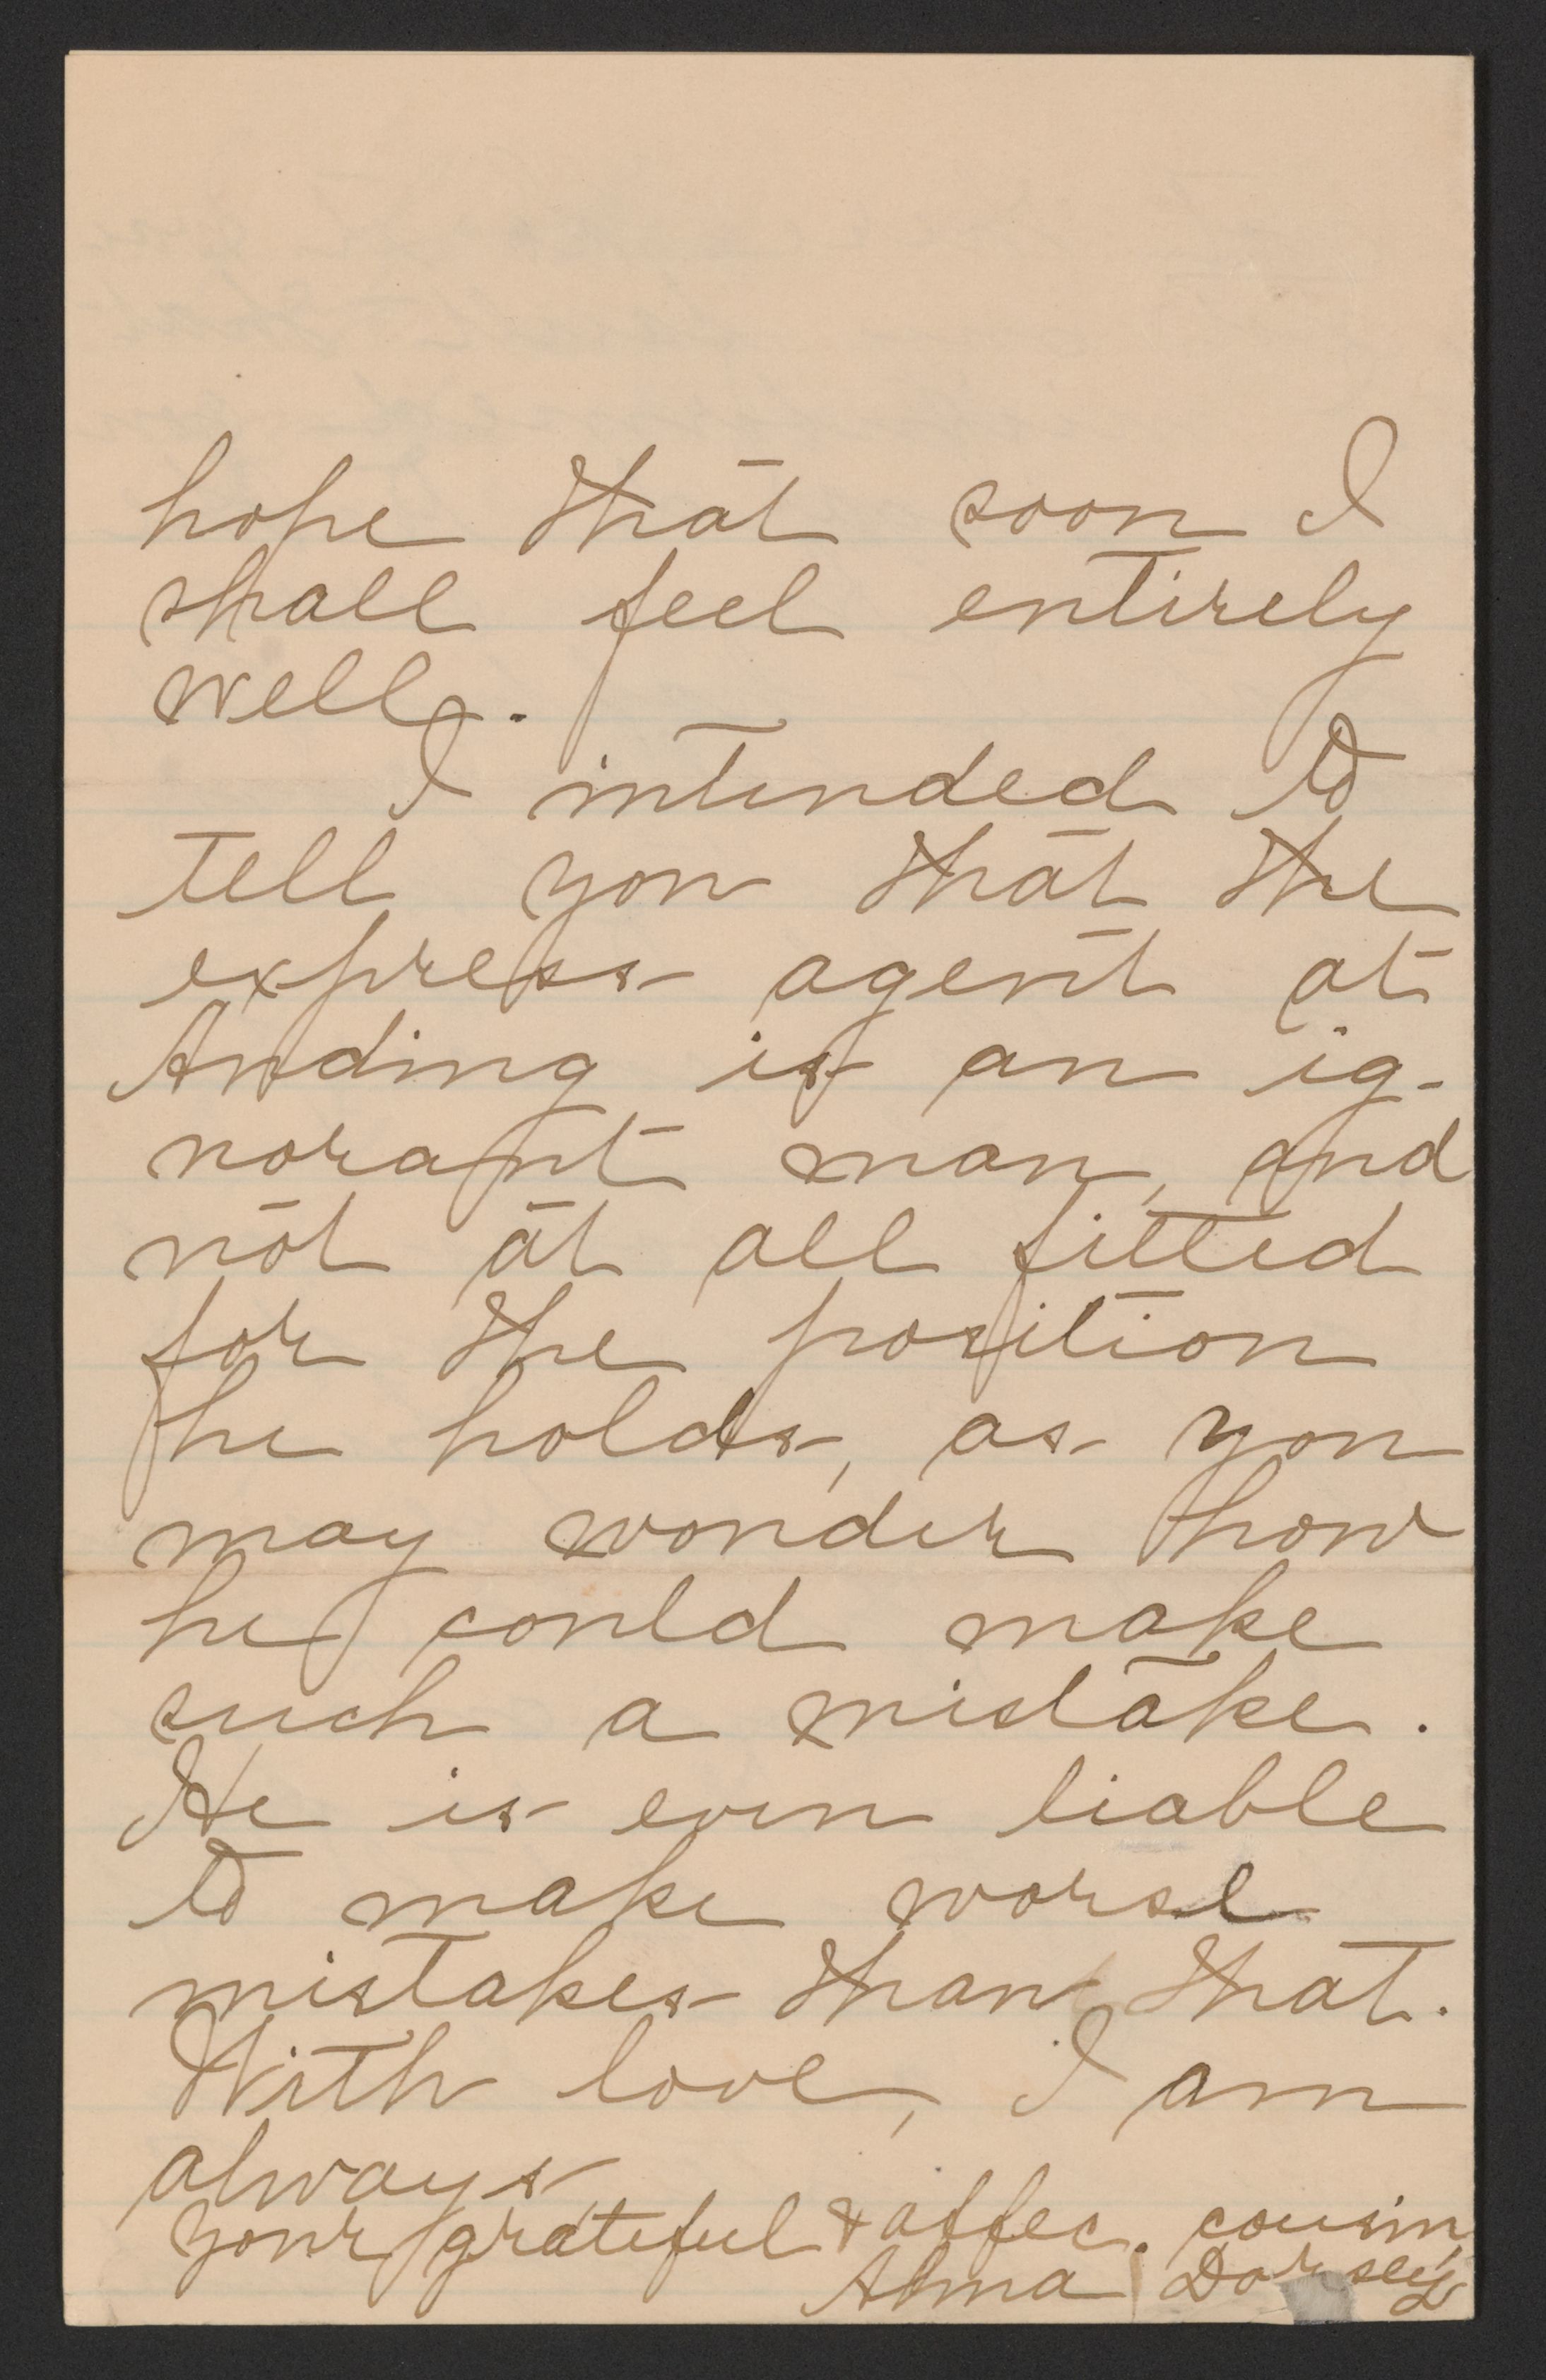 hope that soon I
shall feel entirely
well.
I intended to
tell you that the
express agent at
Anding is an ig-
norant man, and
not at all fitted
for the position
he holds, as you
may wonder how
he could make
such a mistake.
He is even liable
to make worse
mistakes than that.
With love, I am
always
your grateful & affec. cousin,
Alma Dorsey